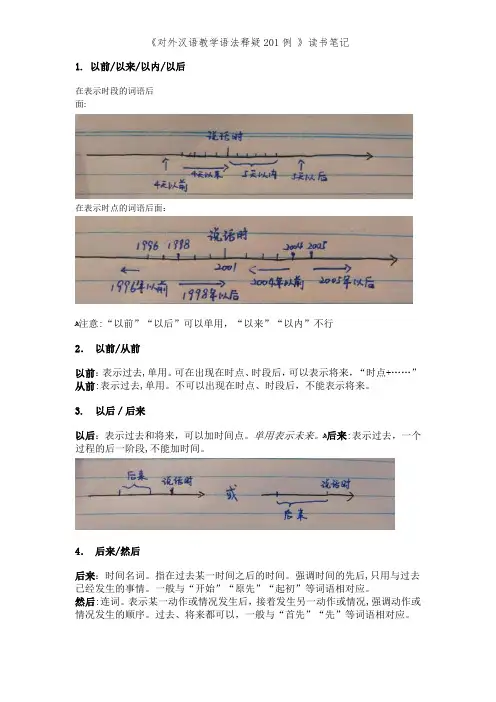 《对外汉语教学语法释疑201例 》读书笔记
1. 以前/以来/以内/以后
在表示时段的词语后
面:
说话时
4天以来 5天以内
4天以前 5天以后
在表示时点的词语后面:
说话时
1996 1998 2004 2005
2001
1996年以前 1998年以后 2004年以前 2005年以后
注意:“以前”“以后”可以单用,“以来”“以内”不行
2. 以前/从前
以前:表示过去,单用。可在出现在时点、时段后,可以表示将来,“时点+……”
从前:表示过去,单用。不可以出现在时点、时段后,不能表示将来。
3. 以后/后来
以后:表示过去和将来,可以加时间点。单用表示未来。后来:表示过去,一个
过程的后一阶段,不能加时间。
后来 说话时 或 说话时
后来
4. 后来/然后
后来:时间名词。指在过去某一时间之后的时间。强调时间的先后,只用与过去
已经发生的事情。一般与“开始”“原先”“起初”等词语相对应。
然后:连词。表示某一动作或情况发生后,接着发生另一动作或情况,强调动作或
情况发生的顺序。过去、将来都可以,一般与“首先”“先”等词语相对应。